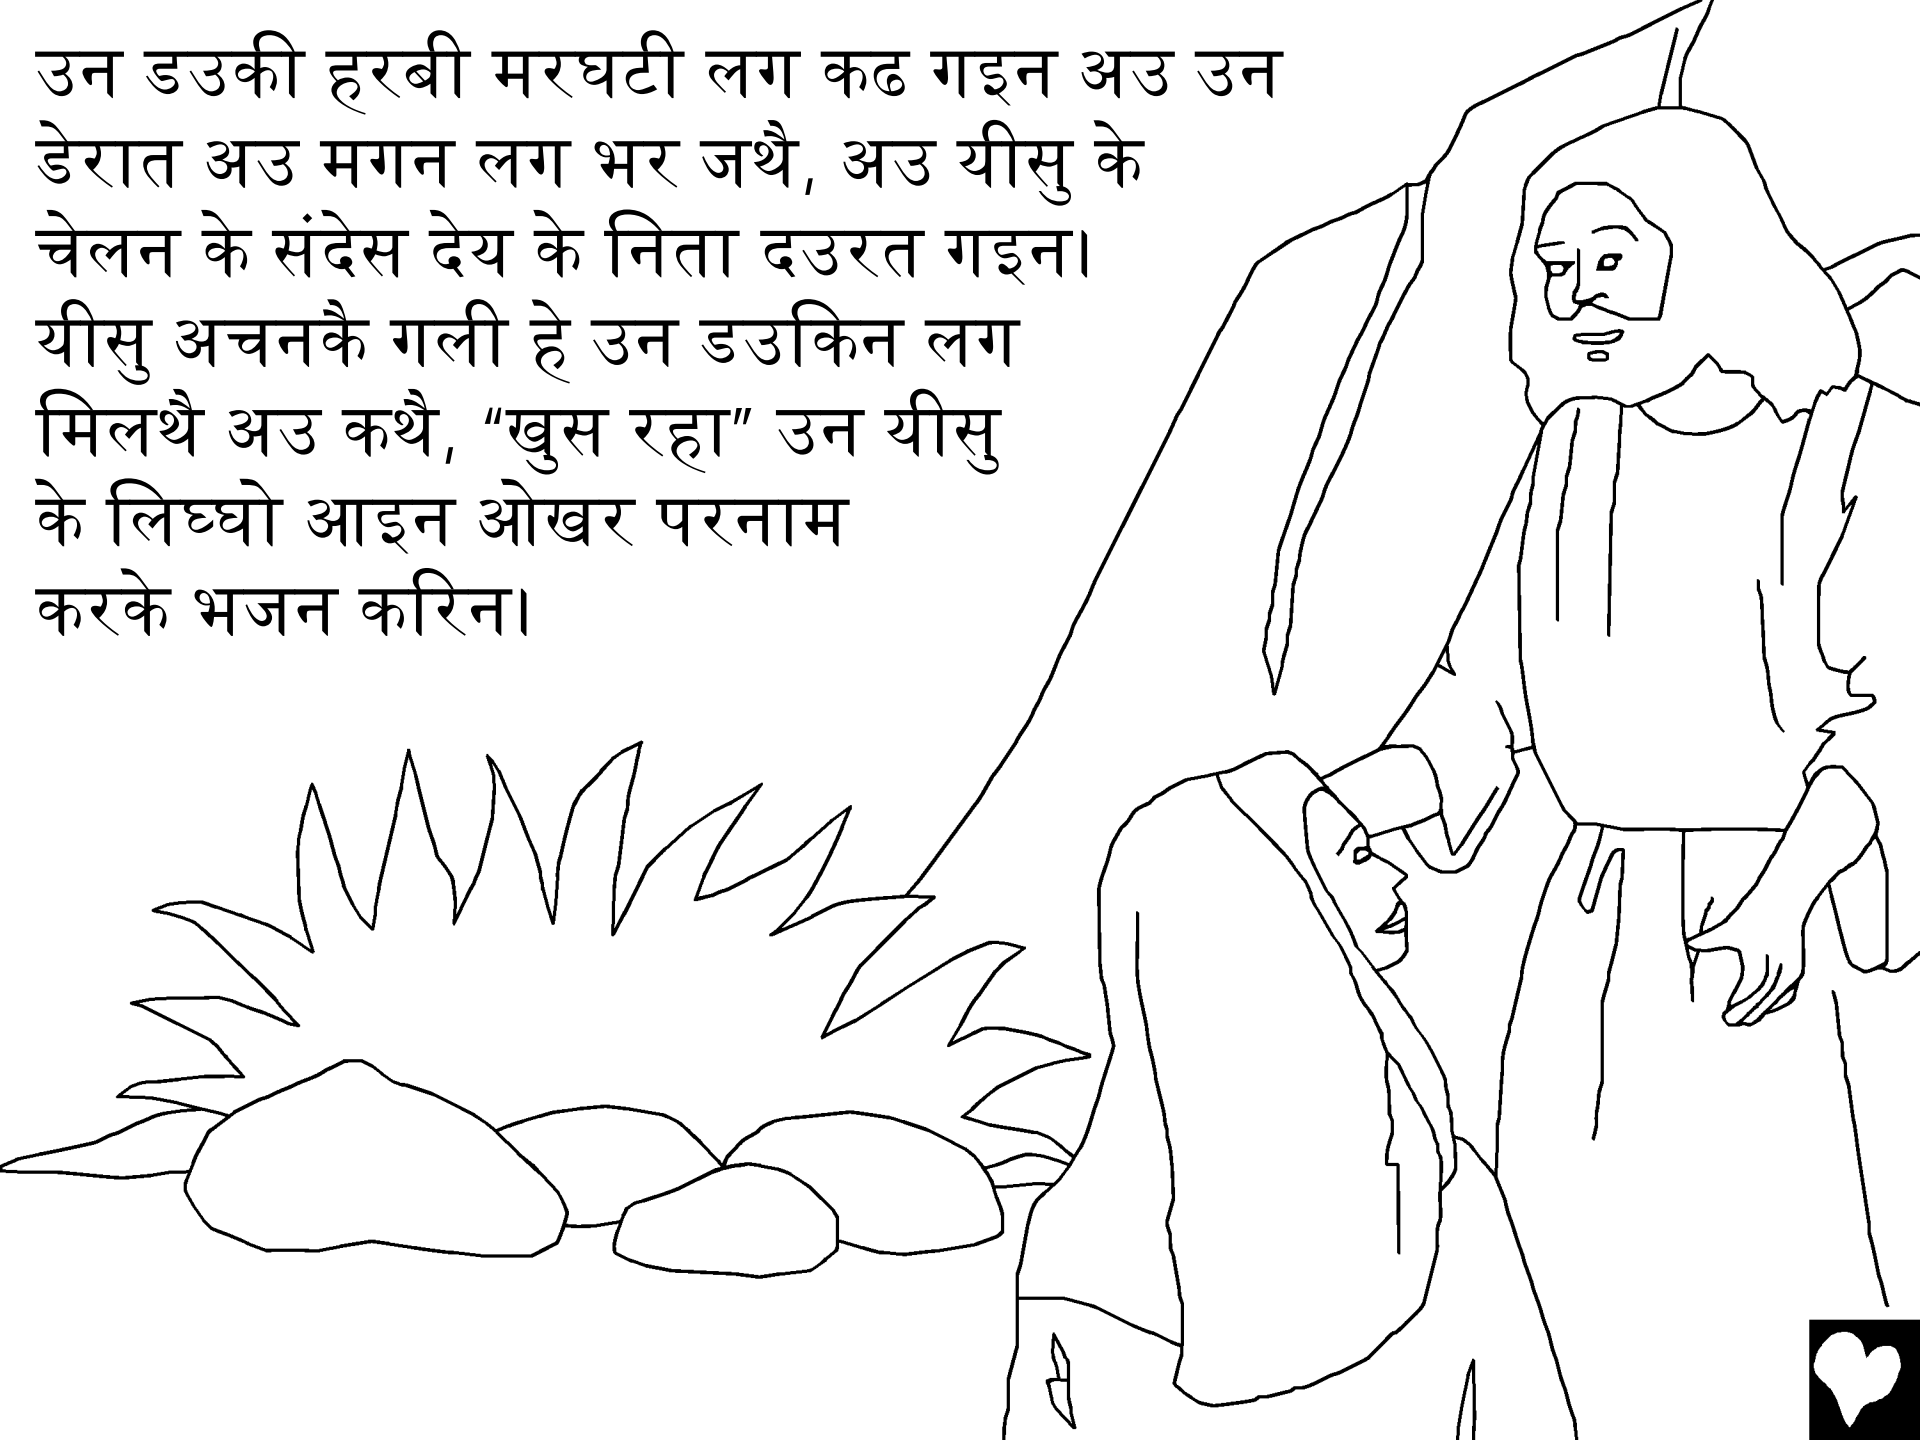 उन डउकी हरबी मरघटी लग कढ गइन अउ उन
डेरात अउ मगन लग भर जथै, अउ यीसु के
चेलन के संदेस देय के निता दउरत गइन।
यीसु अचनकै गली हे उन डउकिन लग
मिलथै अउ कथै, “खुस रहा” उन यीसु
के लिघ्घो आइन ओखर परनाम
करके भजन करिन।